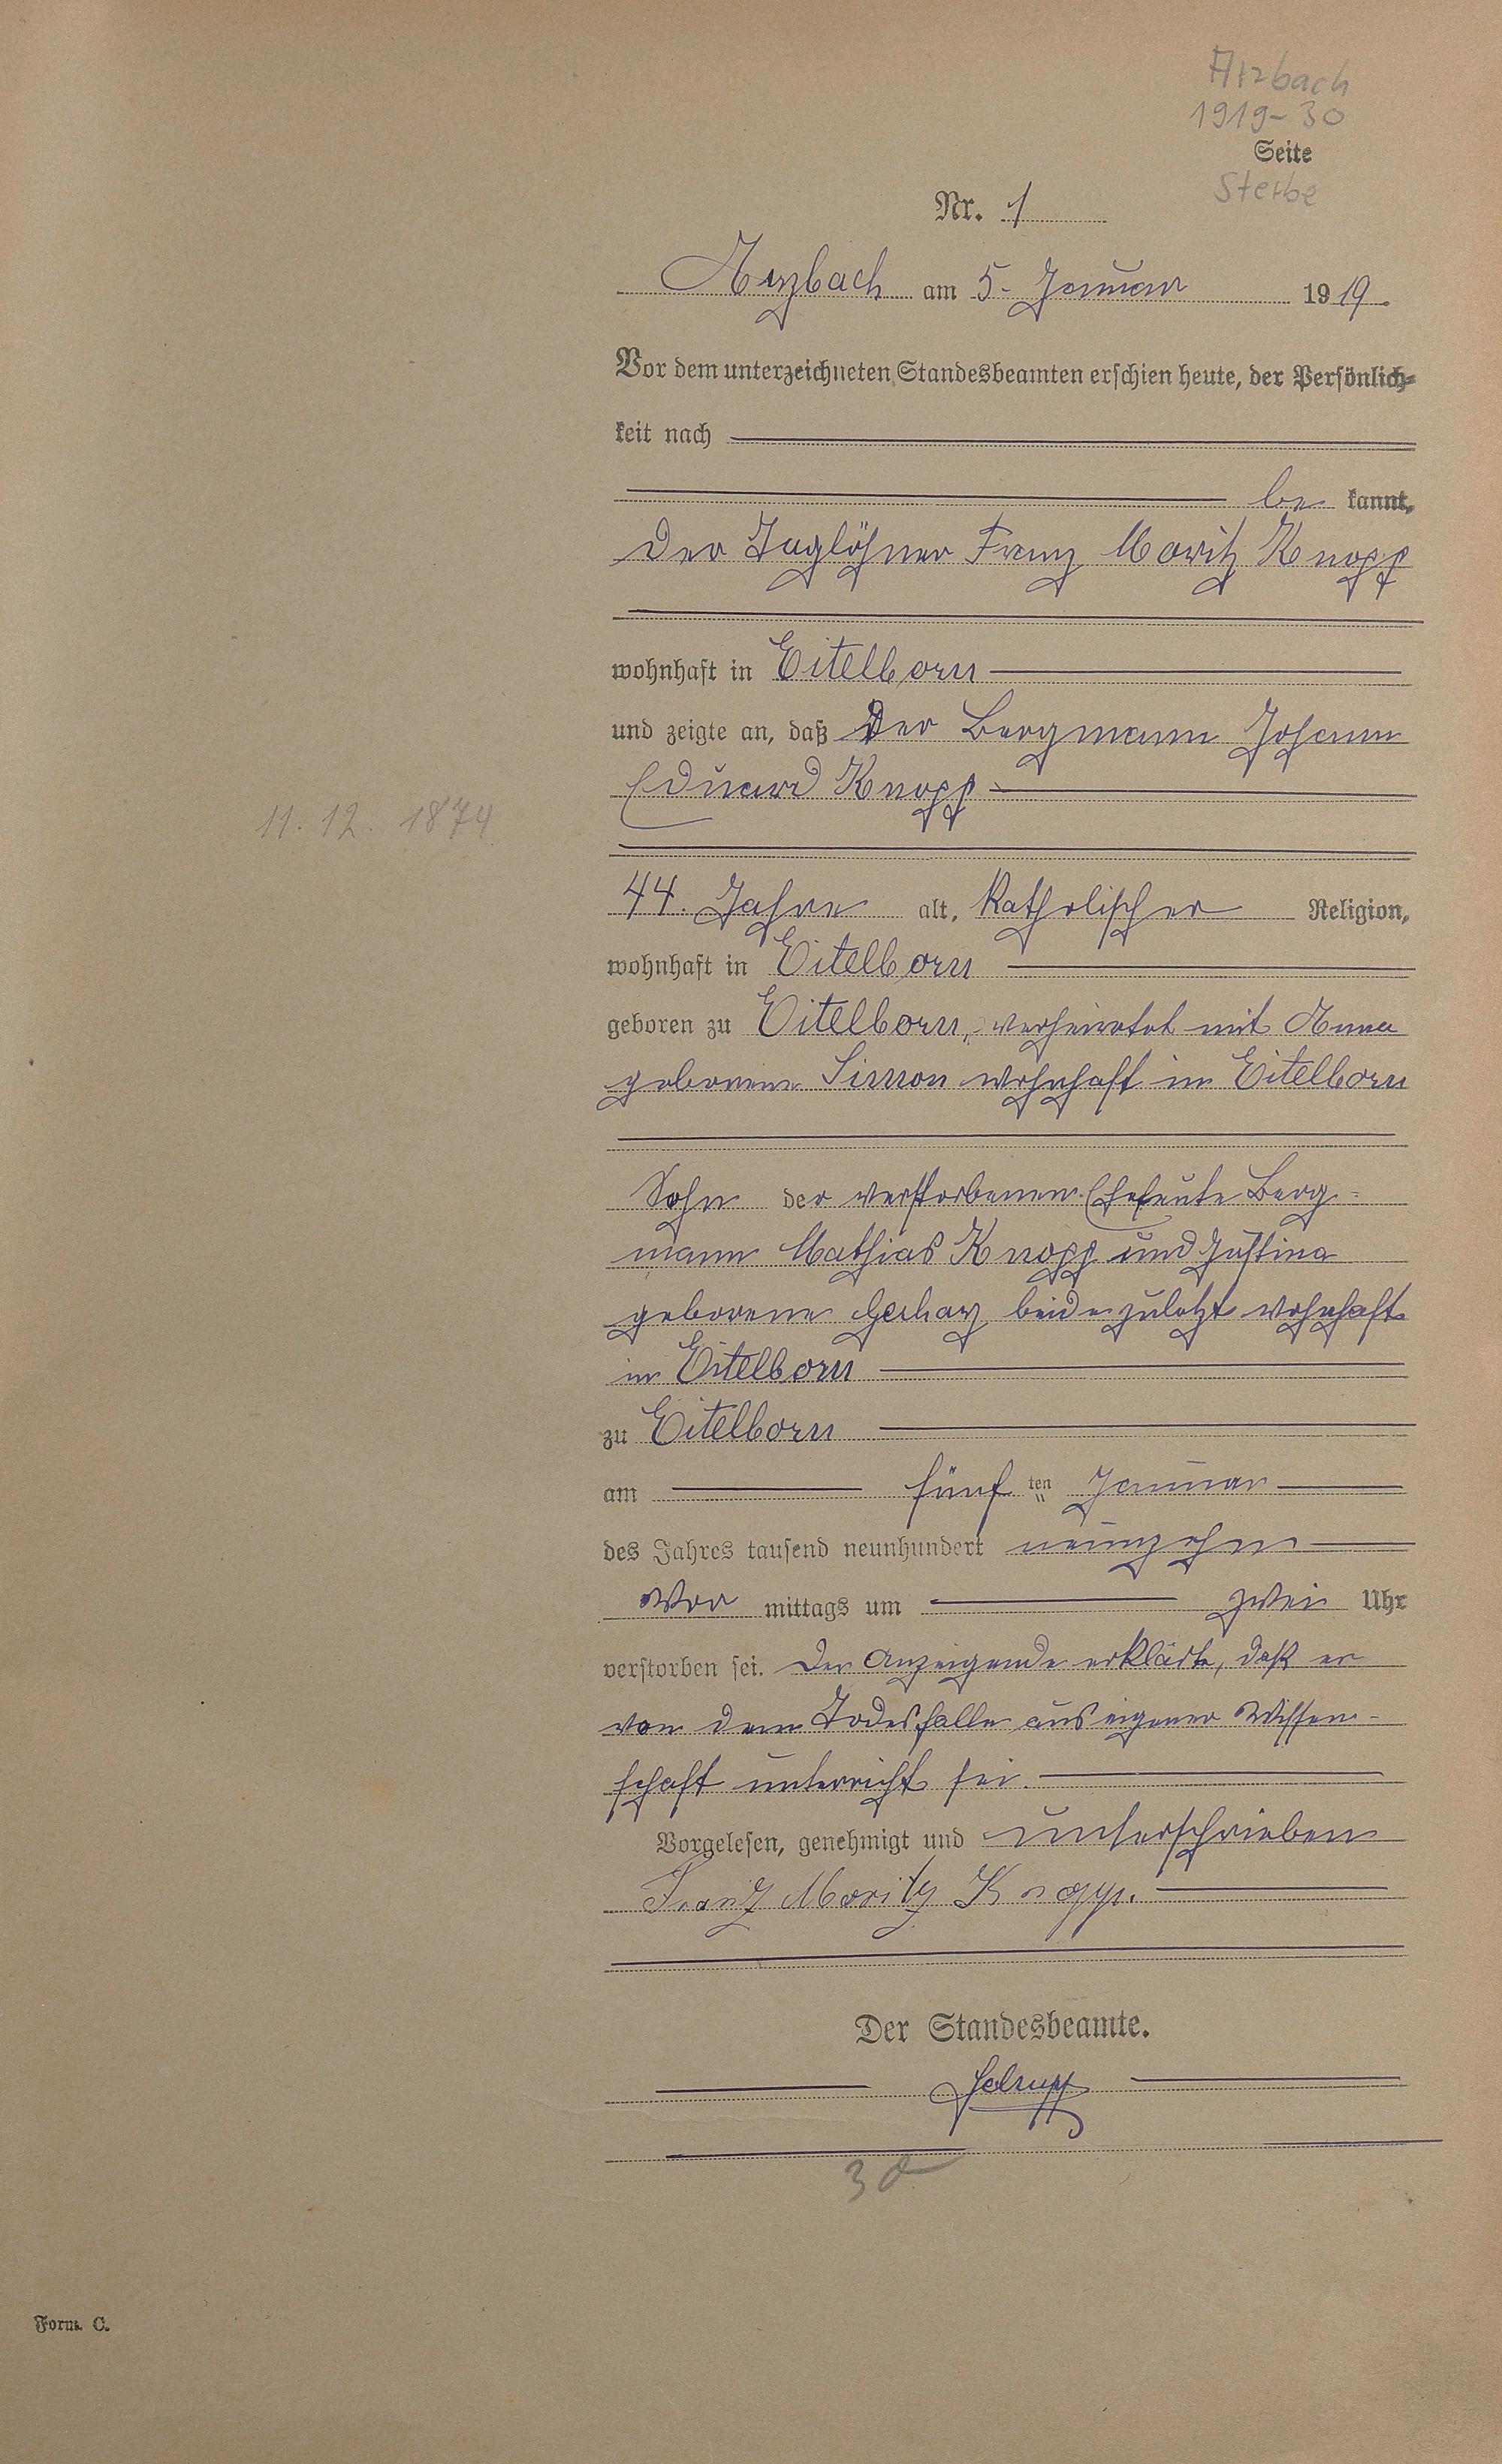 Arzbach
1919-30
Seite
Sterbe
Nr. 1
Arzbach am 5. Januar 1919.
Vor dem unterzeichneten Standesbeamten erschien heute, der Persönlich-
keit nach
be kannt,
der Taglöhner Franz Moritz Knopp
wohnhaft in Eitelborn
und zeigte an, daß Der Bergmann Johann
Eduard Knopp
11. 12. 1874
44. Jahre alt, Katholischer Religion,
wohnhaft in Eitelborn
geboren zu Eitelborn, verheiratet mit Anna
geborene Simon wohnhaft in Eitelborn
Sohn der verstorbenen Eheleute Berg-
mann Mathias Knopp und Justina
geborene beide zuletzt wohnhaft
in Eitelborn
zu Eitelborn
am fünf ten Januar
des Jahres tausend neunhundert neunzehn
Vor mittags um zwei Uhr
verstorben sei. Der Anzeigende erklärte, daß er
von dem Todesfalle aus eigener Wissen-
schaft unterricht sei.
Vorgelesen, genehmigt und unterschrieben
Franz Moritz Knopp.
Der Standesbeamte.
Form. C.